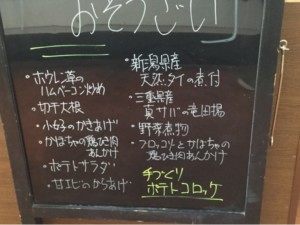 おそうざい
・ホウレン草の
ハムベーコン炒め
・切干大根
・小女子のかきあげ
・かぼちゃの鶏ひき肉
あんかけ
・ポテトサラダ
・甘エビのからあげ
・新潟県産
天然ダイの煮付
・三重県産
真サバの竜田揚
・野菜煮物
・ブロッコリーとかぼちゃの
鶏ひき肉あんかけ
手づくり
ポテトコロッケ